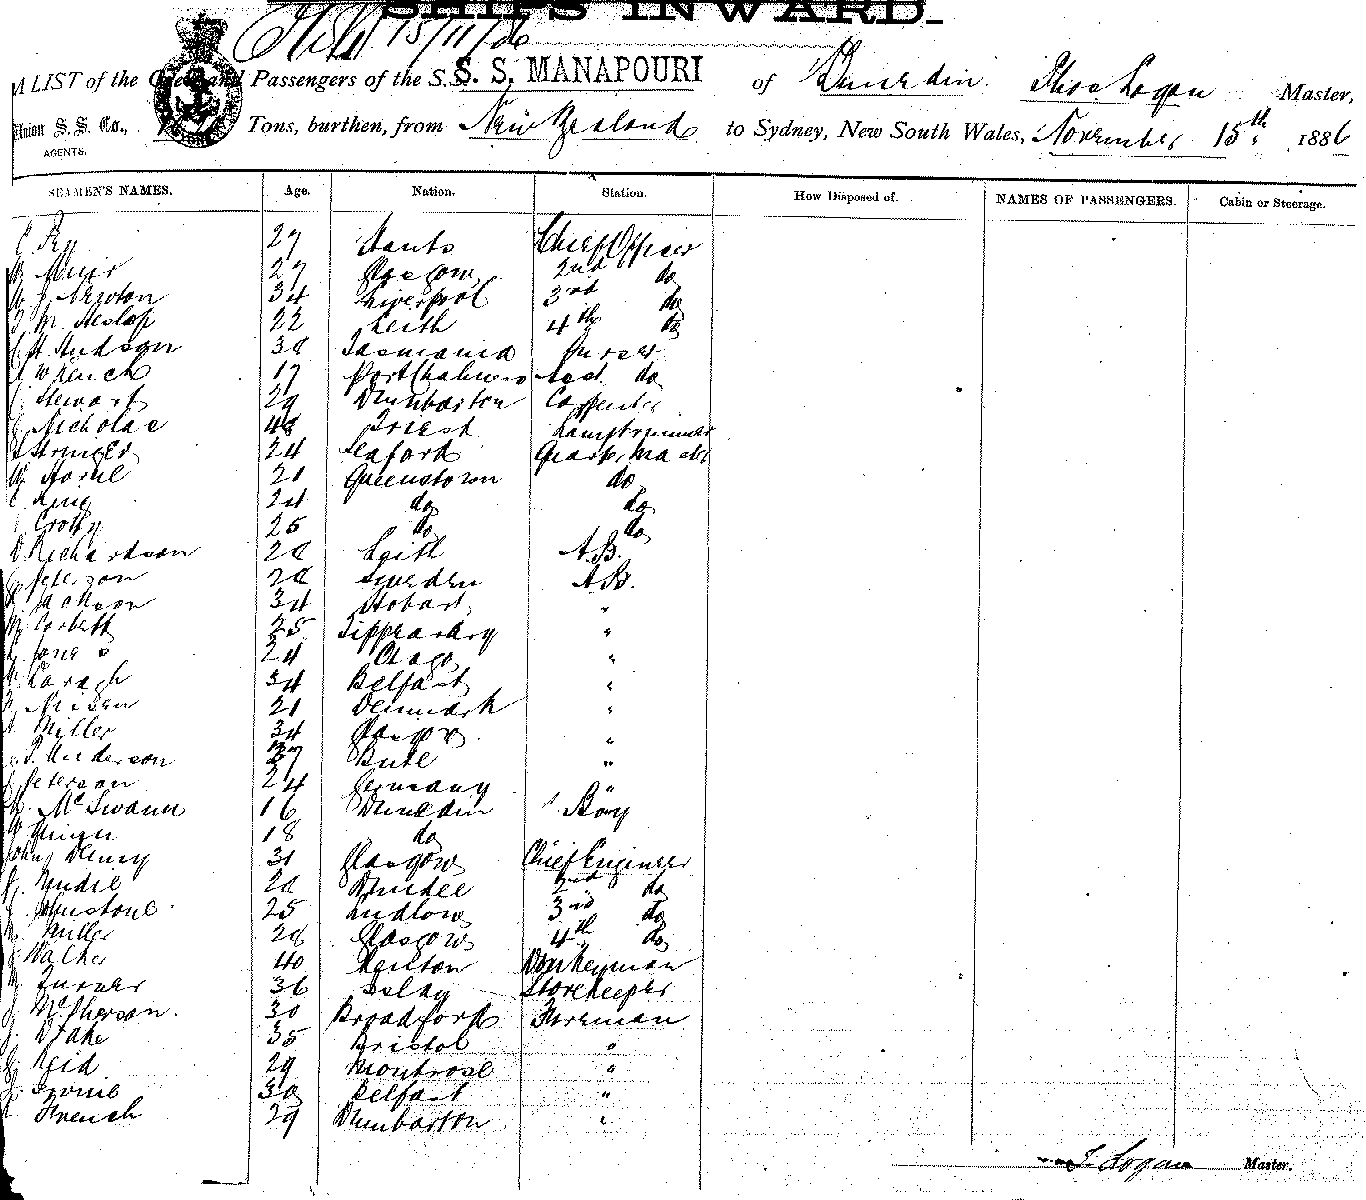 SHIPS INWARD.
15/11/86
A LIST of the Crew and Passengers of the S.S. S. S. MANAPOURI of Dunedin Thos Logan Master,
Union S. S. Co., Tons, burthen, from New Zealand to Sydney, New South Wales, November 15th 1886
AGENTS.
SEAMEN'S NAMES. Age. Nation. Station. How Disposed of. NAMES OF PASSENGERS. Cabin or Steerage.
Fry 27 Hants Chief Officer
Muir 27 Glasgow 2nd do
W J Newton 34 Liverpool 3rd do
M. Heslop 22 Leith 4th do
H Hudson 38 Tasmania Purser
Wrench 17 Port Chalmers Asst do
Stewart 29 Dumbarton Carpenter
Nicholas 48 Triest Lamptrimmer
Stringer 24 Seaford Quarter Master
W Horne 21 Queenstown do
King 24 do do
Crotty 25 do do
Richardson 28 Leith A.B.
Peterson 28 Sweden A.B.
Jackson 34 Hobart "
Corbett 25 Tipperary "
Jones 24 Otago "
Caragh 34 Belfast "
21 Denmark "
Miller 34 Glasgow "
Anderson 27 Bute "
Peterson 24 Germany "
McSwann 16 Dunedin Boy
18 do
John Denny 31 Glasgow Chief Engineer
Mudie 28 Dundee 2nd do
Johnstone 25 Ludlow 3rd do
Miller 28 Glasgow 4th do
Walker 40 Donkeyman
Turner 36 Islay Storekeeper
McPherson. 30 Broadford Fireman
Drake 35 Bristol "
Reid 29 Montrose "
30 Belfast "
French 29 Dumbarton "
T. Logan Master.